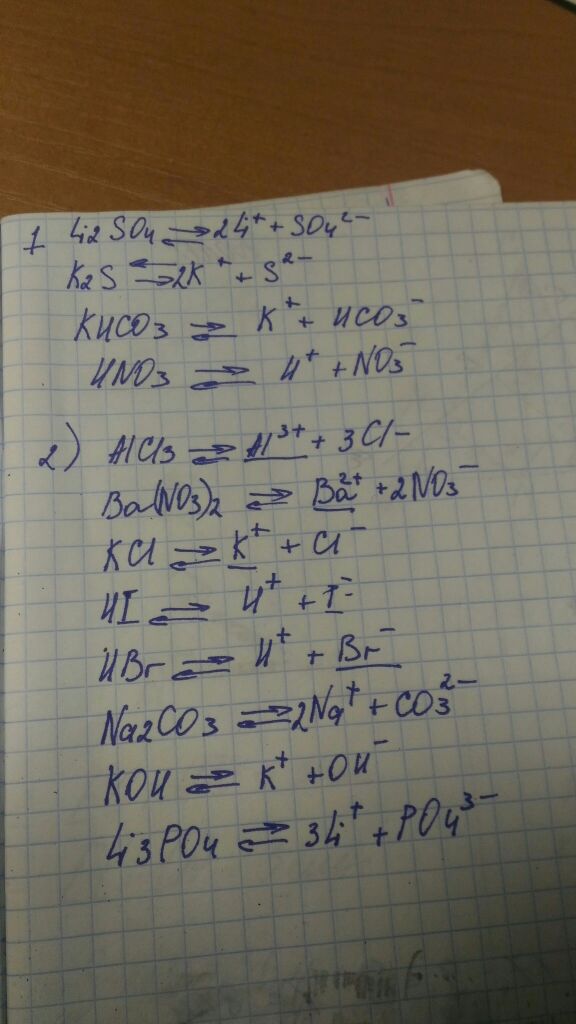 1 Li2SO4 ⇌ 2Li⁺ + SO4²⁻
K2S ⇆ 2K⁺ + S²⁻
KHCO3 ⇌ K⁺ + HCO3⁻
HNO3 ⇌ H⁺ + NO3⁻
2) AlCl3 ⇌ Al³⁺ + 3Cl⁻
Ba(NO3)2 ⇌ Ba²⁺ + 2NO3⁻
KCl ⇌ K⁺ + Cl⁻
HI ⇌ H⁺ + I⁻
HBr ⇌ H⁺ + Br⁻
Na2CO3 ⇌ 2Na⁺ + CO3²⁻
KOH ⇌ K⁺ + OH⁻
Li3PO4 ⇌ 3Li⁺ + PO4³⁻